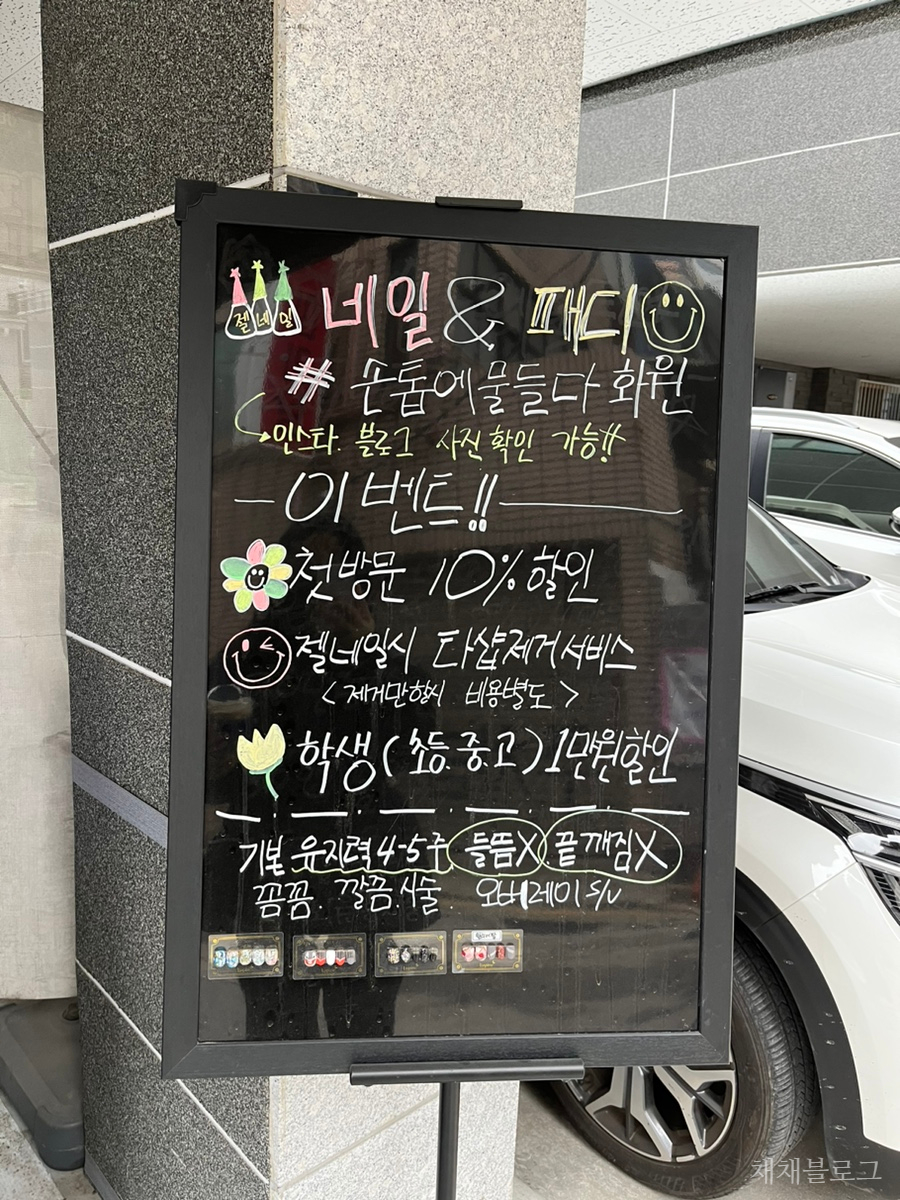 젤 네 일 네일 & 패디
# 손톱에물들다 화원
인스타. 블로그 사진 확인 가능!!
이벤트!!
첫방문 10% 할인
젤네일시 타샵제거서비스
< 제거만할시 비용별도 >
학생 (초등.중.고) 1만원할인
기본 유지력 4-5주 들뜸X 끝 깨짐X
꼼꼼. 깔끔.시술. 오버레이 S/V
채채블로그